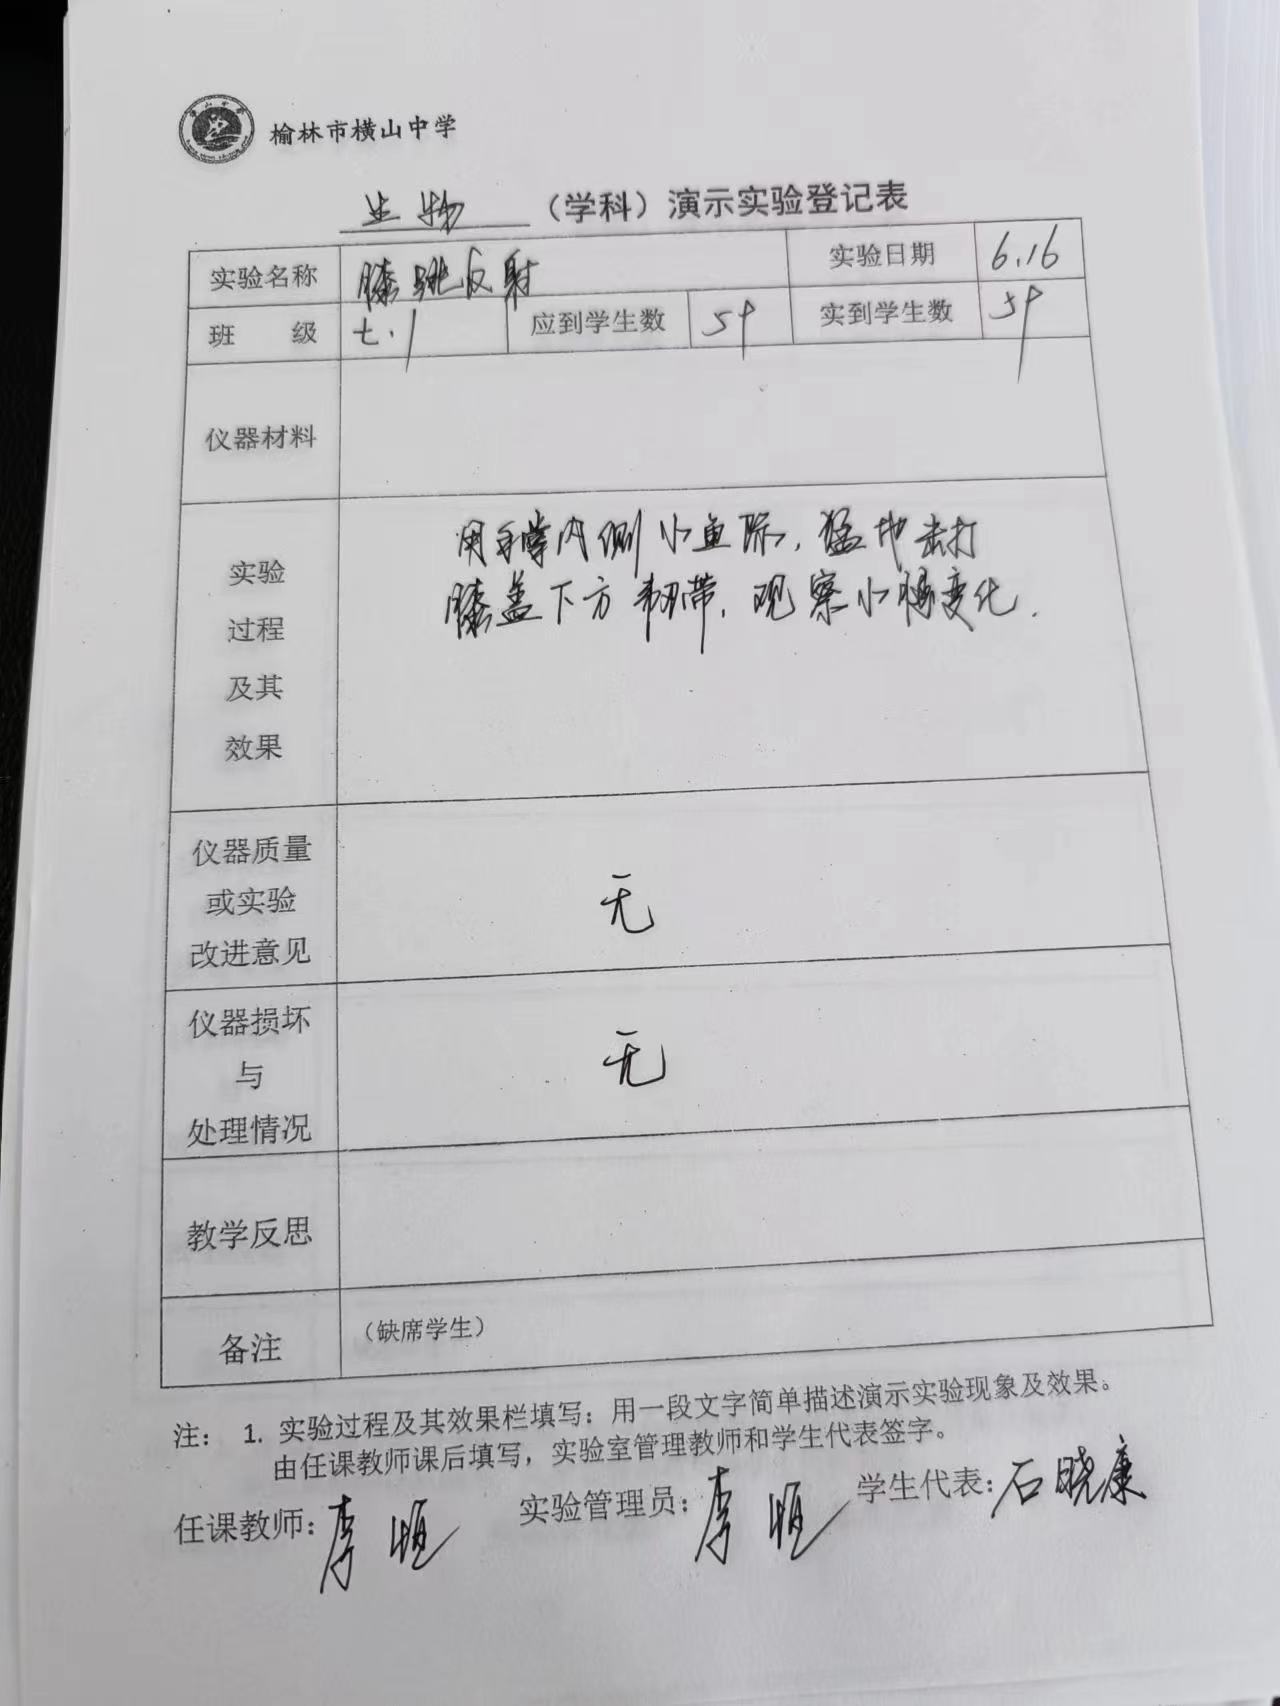 榆林市横山中学
生物（学科）演示实验登记表
实验名称 膝跳反射 实验日期 6.16
班 级 七.1 应到学生数 59 实到学生数 59
仪器材料
实验
过程
及其
效果
用手掌内侧小鱼际，猛地击打
膝盖下方韧带，观察小腿变化.
仪器质量
或实验
改进意见
无
仪器损坏
与
处理情况
无
教学反思
备注 （缺席学生）
注： 1. 实验过程及其效果栏填写：用一段文字简单描述演示实验现象及效果。
由任课教师课后填写，实验室管理教师和学生代表签字。
任课教师：李 实验管理员：李 学生代表：石晓康